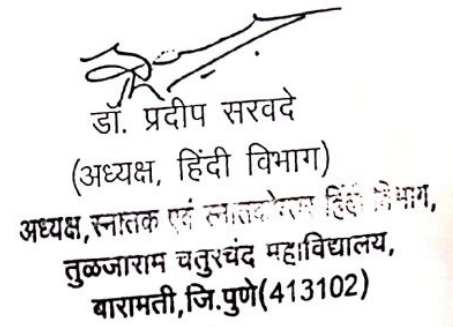 डॉ. प्रदीप सरवदे
(अध्यक्ष, हिंदी विभाग)
अध्यक्ष,स्नातक एवं स्नातकोत्तर हिंदी विभाग,
तुळजाराम चतुरचंद महाविद्यालय,
बारामती,जि.पुणे(413102)